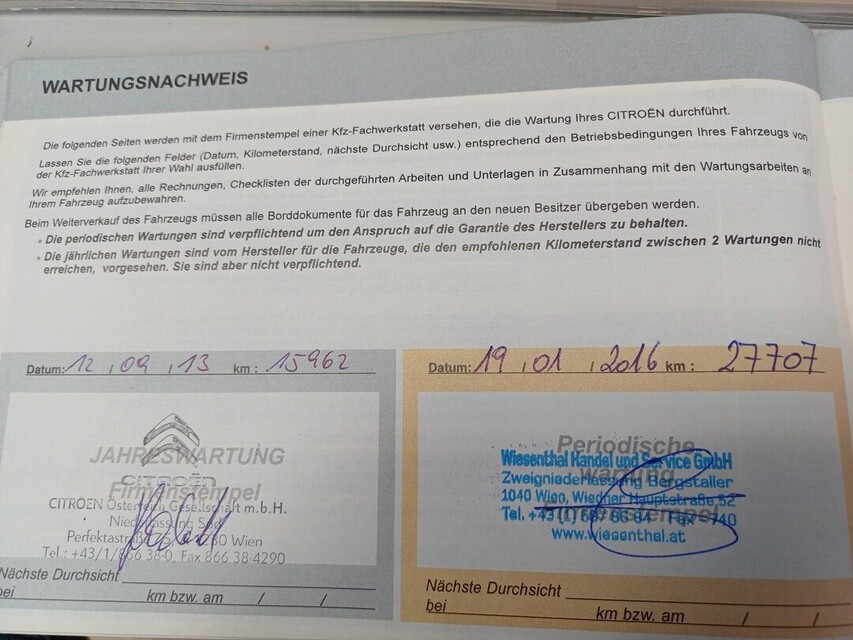 WARTUNGSNACHWEIS
Die folgenden Seiten werden mit dem Firmenstempel einer Kfz-Fachwerkstatt versehen, die die Wartung Ihres CITROËN durchführt.
Lassen Sie die folgenden Felder (Datum, Kilometerstand, nächste Durchsicht usw.) entsprechend den Betriebsbedingungen Ihres Fahrzeugs von
der Kfz-Fachwerkstatt Ihrer Wahl ausfüllen.
Wir empfehlen Ihnen, alle Rechnungen, Checklisten der durchgeführten Arbeiten und Unterlagen in Zusammenhang mit den Wartungsarbeiten an
Ihrem Fahrzeug aufzubewahren.
Beim Weiterverkauf des Fahrzeugs müssen alle Borddokumente für das Fahrzeug an den neuen Besitzer übergeben werden.
• Die periodischen Wartungen sind verpflichtend um den Anspruch auf die Garantie des Herstellers zu behalten.
• Die jährlichen Wartungen sind vom Hersteller für die Fahrzeuge, die den empfohlenen Kilometerstand zwischen 2 Wartungen nicht
erreichen, vorgesehen. Sie sind aber nicht verpflichtend.
Datum: 12 / 09 / 13 km : 15962
JAHRESWARTUNG
CITROËN
Firmenstempel
CITROËN Österreich Gesellschaft m.b.H.
Niederlassung Süd
Wien
Tel.: +43/1/866 38-0, Fax 866 38-4290
Nächste Durchsicht
bei km bzw. am / /
Datum: 19 / 01 / 2016 km : 27707
Periodische
Wartung
Wiesenthal Handel und Service GmbH
Zweigniederlassung Bergstaller
1040 Wien, Wiedner Hauptstraße 52
Firmenstempel
Tel. +43 (1) Fax
www.wiesenthal.at
Nächste Durchsicht
bei km bzw. am / /